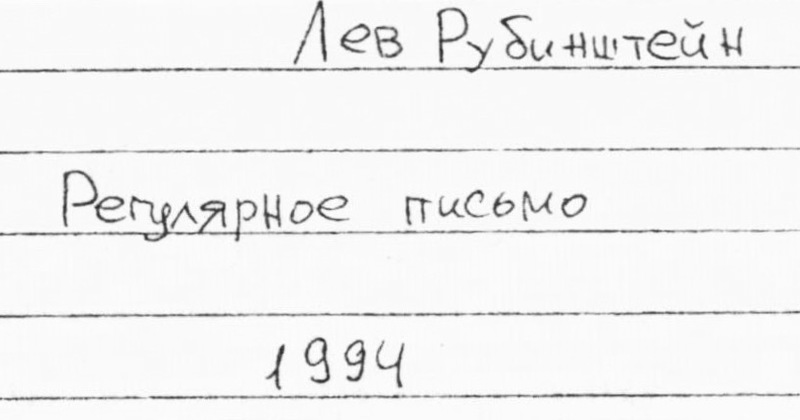 Лев Рубинштейн
Регулярное письмо
1994